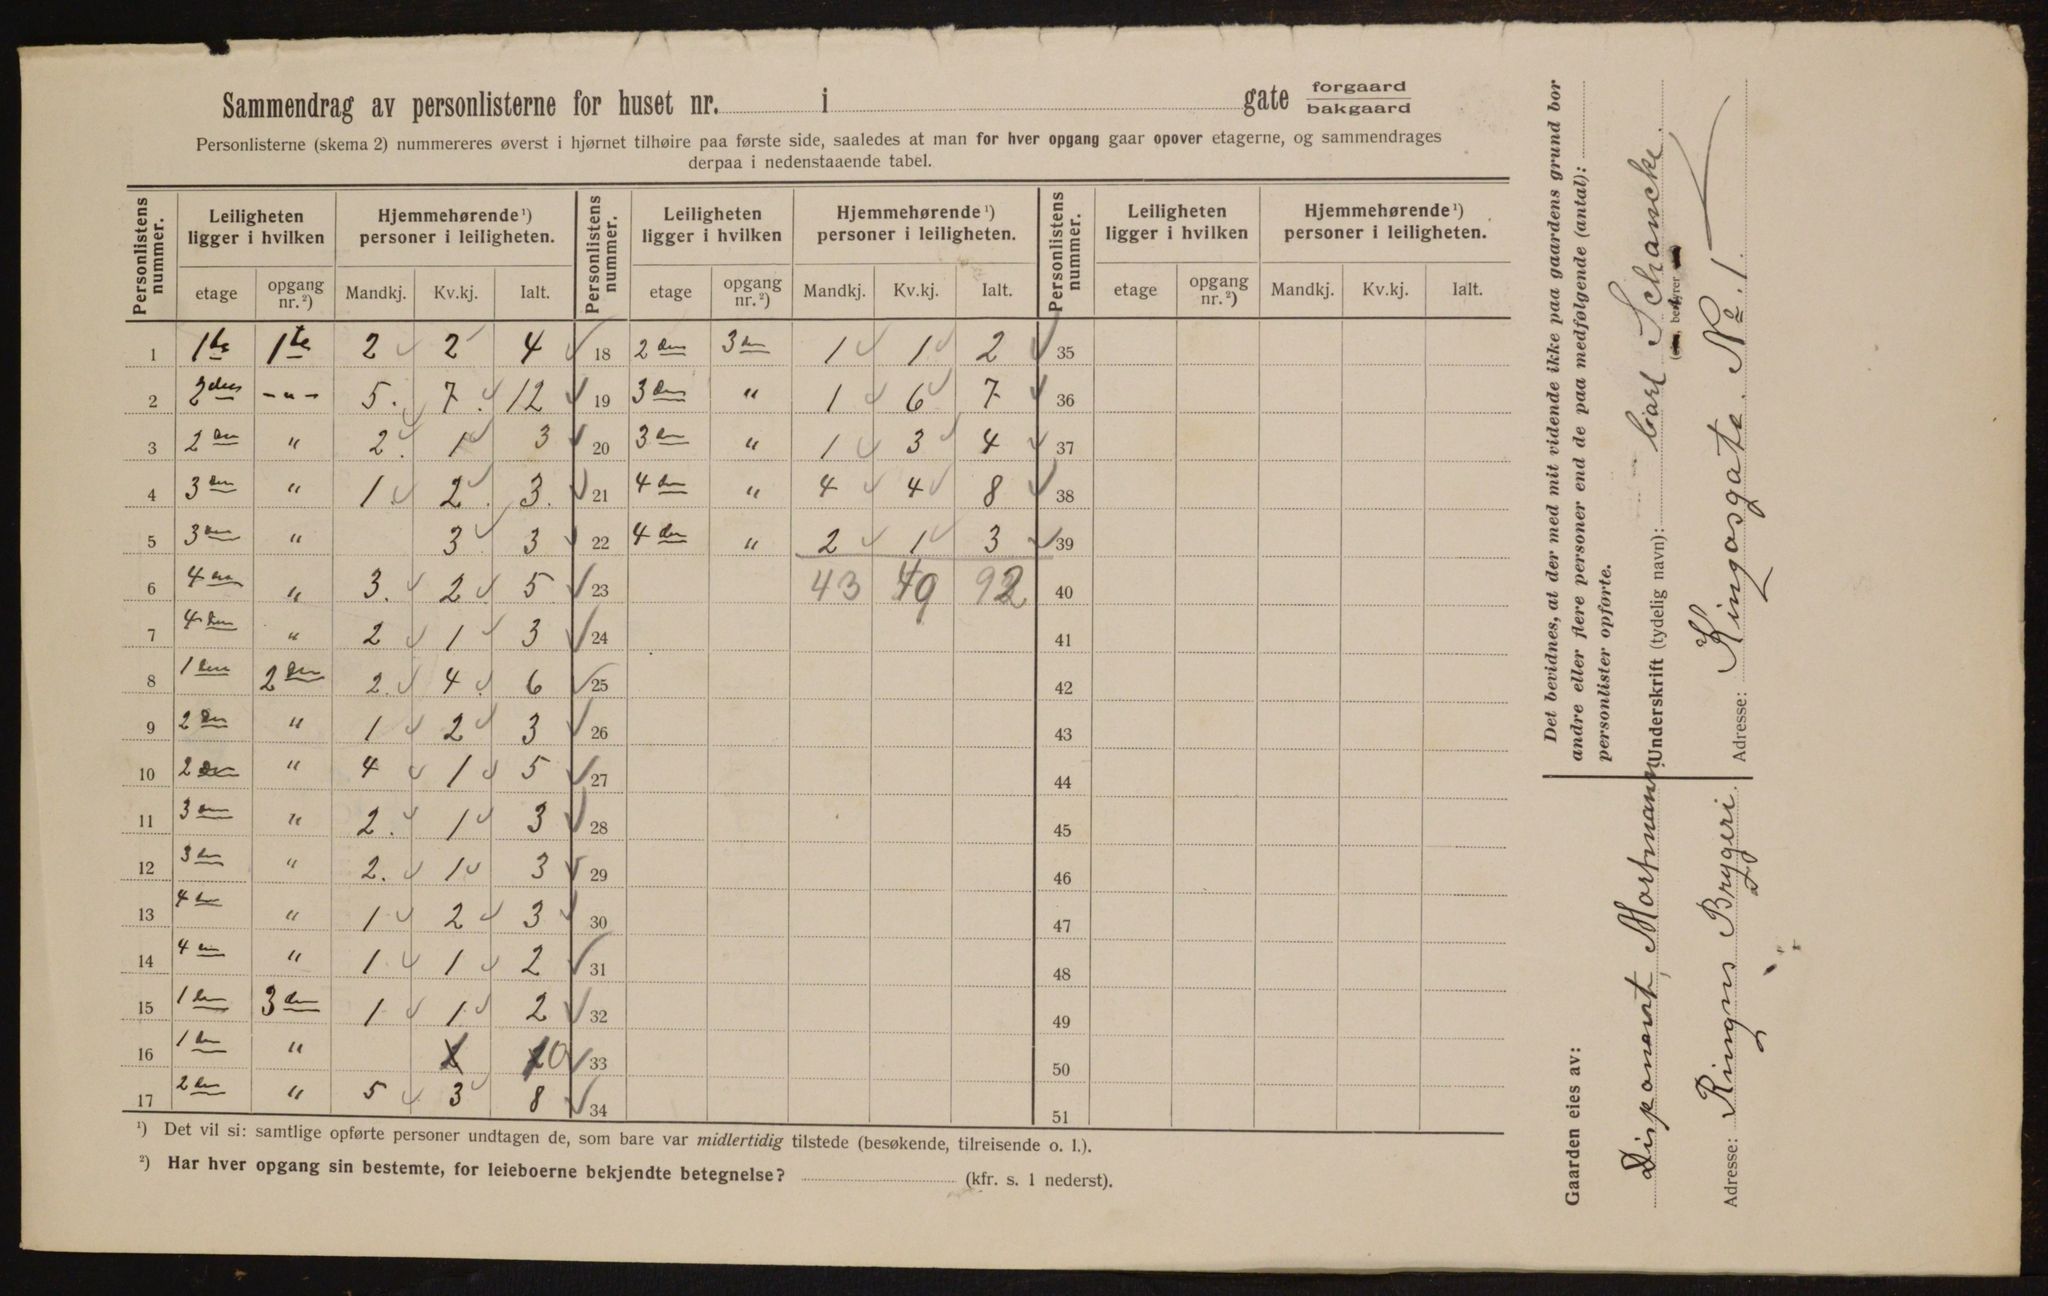 Sammendrag av personlisterne for huset nr. i gate forgaard bakgaard
Personlisterne (skema 2) nummereres øverst i hjørnet tilhøire paa første side, saaledes at man for hver opgang gaar opover etagerne, og sammendrages
derpaa i nedenstaaende tabel.
Personlistens nummer. Leiligheten ligger i hvilken Hjemmehørende ¹) personer i leiligheten. Personlistens nummer. Leiligheten ligger i hvilken Hjemmehørende ¹) personer i leiligheten. Personlistens nummer. Leiligheten ligger i hvilken Hjemmehørende ¹) personer i leiligheten.
etage opgang nr. ²) Mandkj. Kv.kj. Ialt. etage opgang nr. ²) Mandkj. Kv.kj. Ialt. etage opgang nr. ²) Mandkj. Kv.kj. Ialt.
1 1te 1te 2 2 4 18 2den 3den 1 1 2 35
2 2den -"- 5. 7. 12 19 3den " 1 6 7 36
3 2den " 2. 1 3 20 3den " 1 3 4 37
4 3den " 1. 2. 3. 21 4den " 4 4 8 38
5 3den " 3 3 22 4den " 2 1 3 39
6 4den " 3. 2. 5 23 43 49 92 40
7 4den " 2 1 3 24 41
8 1den 2den 2. 4. 6 25 42
9 2den " 1 2 3 26 43
10 2den " 4 1 5 27 44
11 3den " 2. 1 3 28 45
12 3den " 2. 1 3 29 46
13 4den " 1 2 3 30 47
14 4den " 1 1 2 31 48
15 1den 3den 1 1 2 32 49
16 1den " 0 33 50
17 2den " 5 3 8 34 51
¹) Det vil si: samtlige opførte personer undtagen de, som bare var midlertidig tilstede (besøkende, tilreisende o. l.).
²) Har hver opgang sin bestemte, for leieboerne bekjendte betegnelse? (kfr. s. 1 nederst).
Det bevidnes, at der med mit vidende ikke paa gaardens grund bor
andre eller flere personer end de paa medfølgende (antal):
personlister opførte.
Underskrift (tydelig navn): Carl Schancke.
(eier, bestyrer
Adresse: Kingosgate No. 1
Gaarden eies av:
Disponent, Mortmann
Adresse: Ringnes Bryggeri.